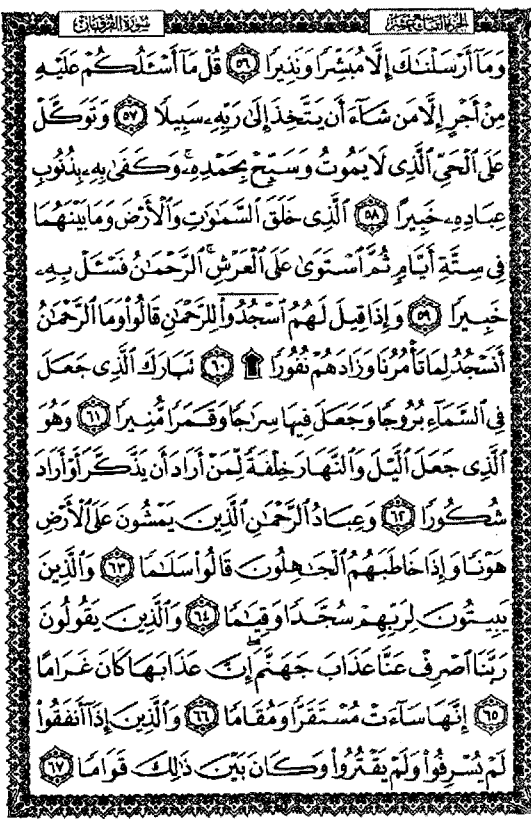 الجزء التاسع عشر
سورة الفرقان
وَمَآ أَرْسَلْنَٰكَ إِلَّا مُبَشِّرًا وَنَذِيرًا ٥٦ قُلْ مَآ أَسْـَٔلُكُمْ عَلَيْهِ
مِنْ أَجْرٍ إِلَّا مَن شَآءَ أَن يَتَّخِذَ إِلَىٰ رَبِّهِۦ سَبِيلًا ٥٧ وَتَوَكَّلْ
عَلَى ٱلْحَىِّ ٱلَّذِى لَا يَمُوتُ وَسَبِّحْ بِحَمْدِهِۦۚ وَكَفَىٰ بِهِۦ بِذُنُوبِ
عِبَادِهِۦ خَبِيرًا ٥٨ ٱلَّذِى خَلَقَ ٱلسَّمَٰوَٰتِ وَٱلْأَرْضَ وَمَا بَيْنَهُمَا
فِى سِتَّةِ أَيَّامٍ ثُمَّ ٱسْتَوَىٰ عَلَى ٱلْعَرْشِۚ ٱلرَّحْمَٰنُ فَسْـَٔلْ بِهِۦ
خَبِيرًا ٥٩ وَإِذَا قِيلَ لَهُمُ ٱسْجُدُوا۟ لِلرَّحْمَٰنِ قَالُوا۟ وَمَا ٱلرَّحْمَٰنُ
أَنَسْجُدُ لِمَا تَأْمُرُنَا وَزَادَهُمْ نُفُورًا ۩ ٦٠ تَبَارَكَ ٱلَّذِى جَعَلَ
فِى ٱلسَّمَآءِ بُرُوجًا وَجَعَلَ فِيهَا سِرَٰجًا وَقَمَرًا مُّنِيرًا ٦١ وَهُوَ
ٱلَّذِى جَعَلَ ٱلَّيْلَ وَٱلنَّهَارَ خِلْفَةً لِّمَنْ أَرَادَ أَن يَذَّكَّرَ أَوْ أَرَادَ
شُكُورًا ٦٢ وَعِبَادُ ٱلرَّحْمَٰنِ ٱلَّذِينَ يَمْشُونَ عَلَى ٱلْأَرْضِ
هَوْنًا وَإِذَا خَاطَبَهُمُ ٱلْجَٰهِلُونَ قَالُوا۟ سَلَٰمًا ٦٣ وَٱلَّذِينَ
يَبِيتُونَ لِرَبِّهِمْ سُجَّدًا وَقِيَٰمًا ٦٤ وَٱلَّذِينَ يَقُولُونَ
رَبَّنَا ٱصْرِفْ عَنَّا عَذَابَ جَهَنَّمَۖ إِنَّ عَذَابَهَا كَانَ غَرَامًا
٦٥ إِنَّهَا سَآءَتْ مُسْتَقَرًّا وَمُقَامًا ٦٦ وَٱلَّذِينَ إِذَآ أَنفَقُوا۟
لَمْ يُسْرِفُوا۟ وَلَمْ يَقْتُرُوا۟ وَكَانَ بَيْنَ ذَٰلِكَ قَوَامًا ٦٧